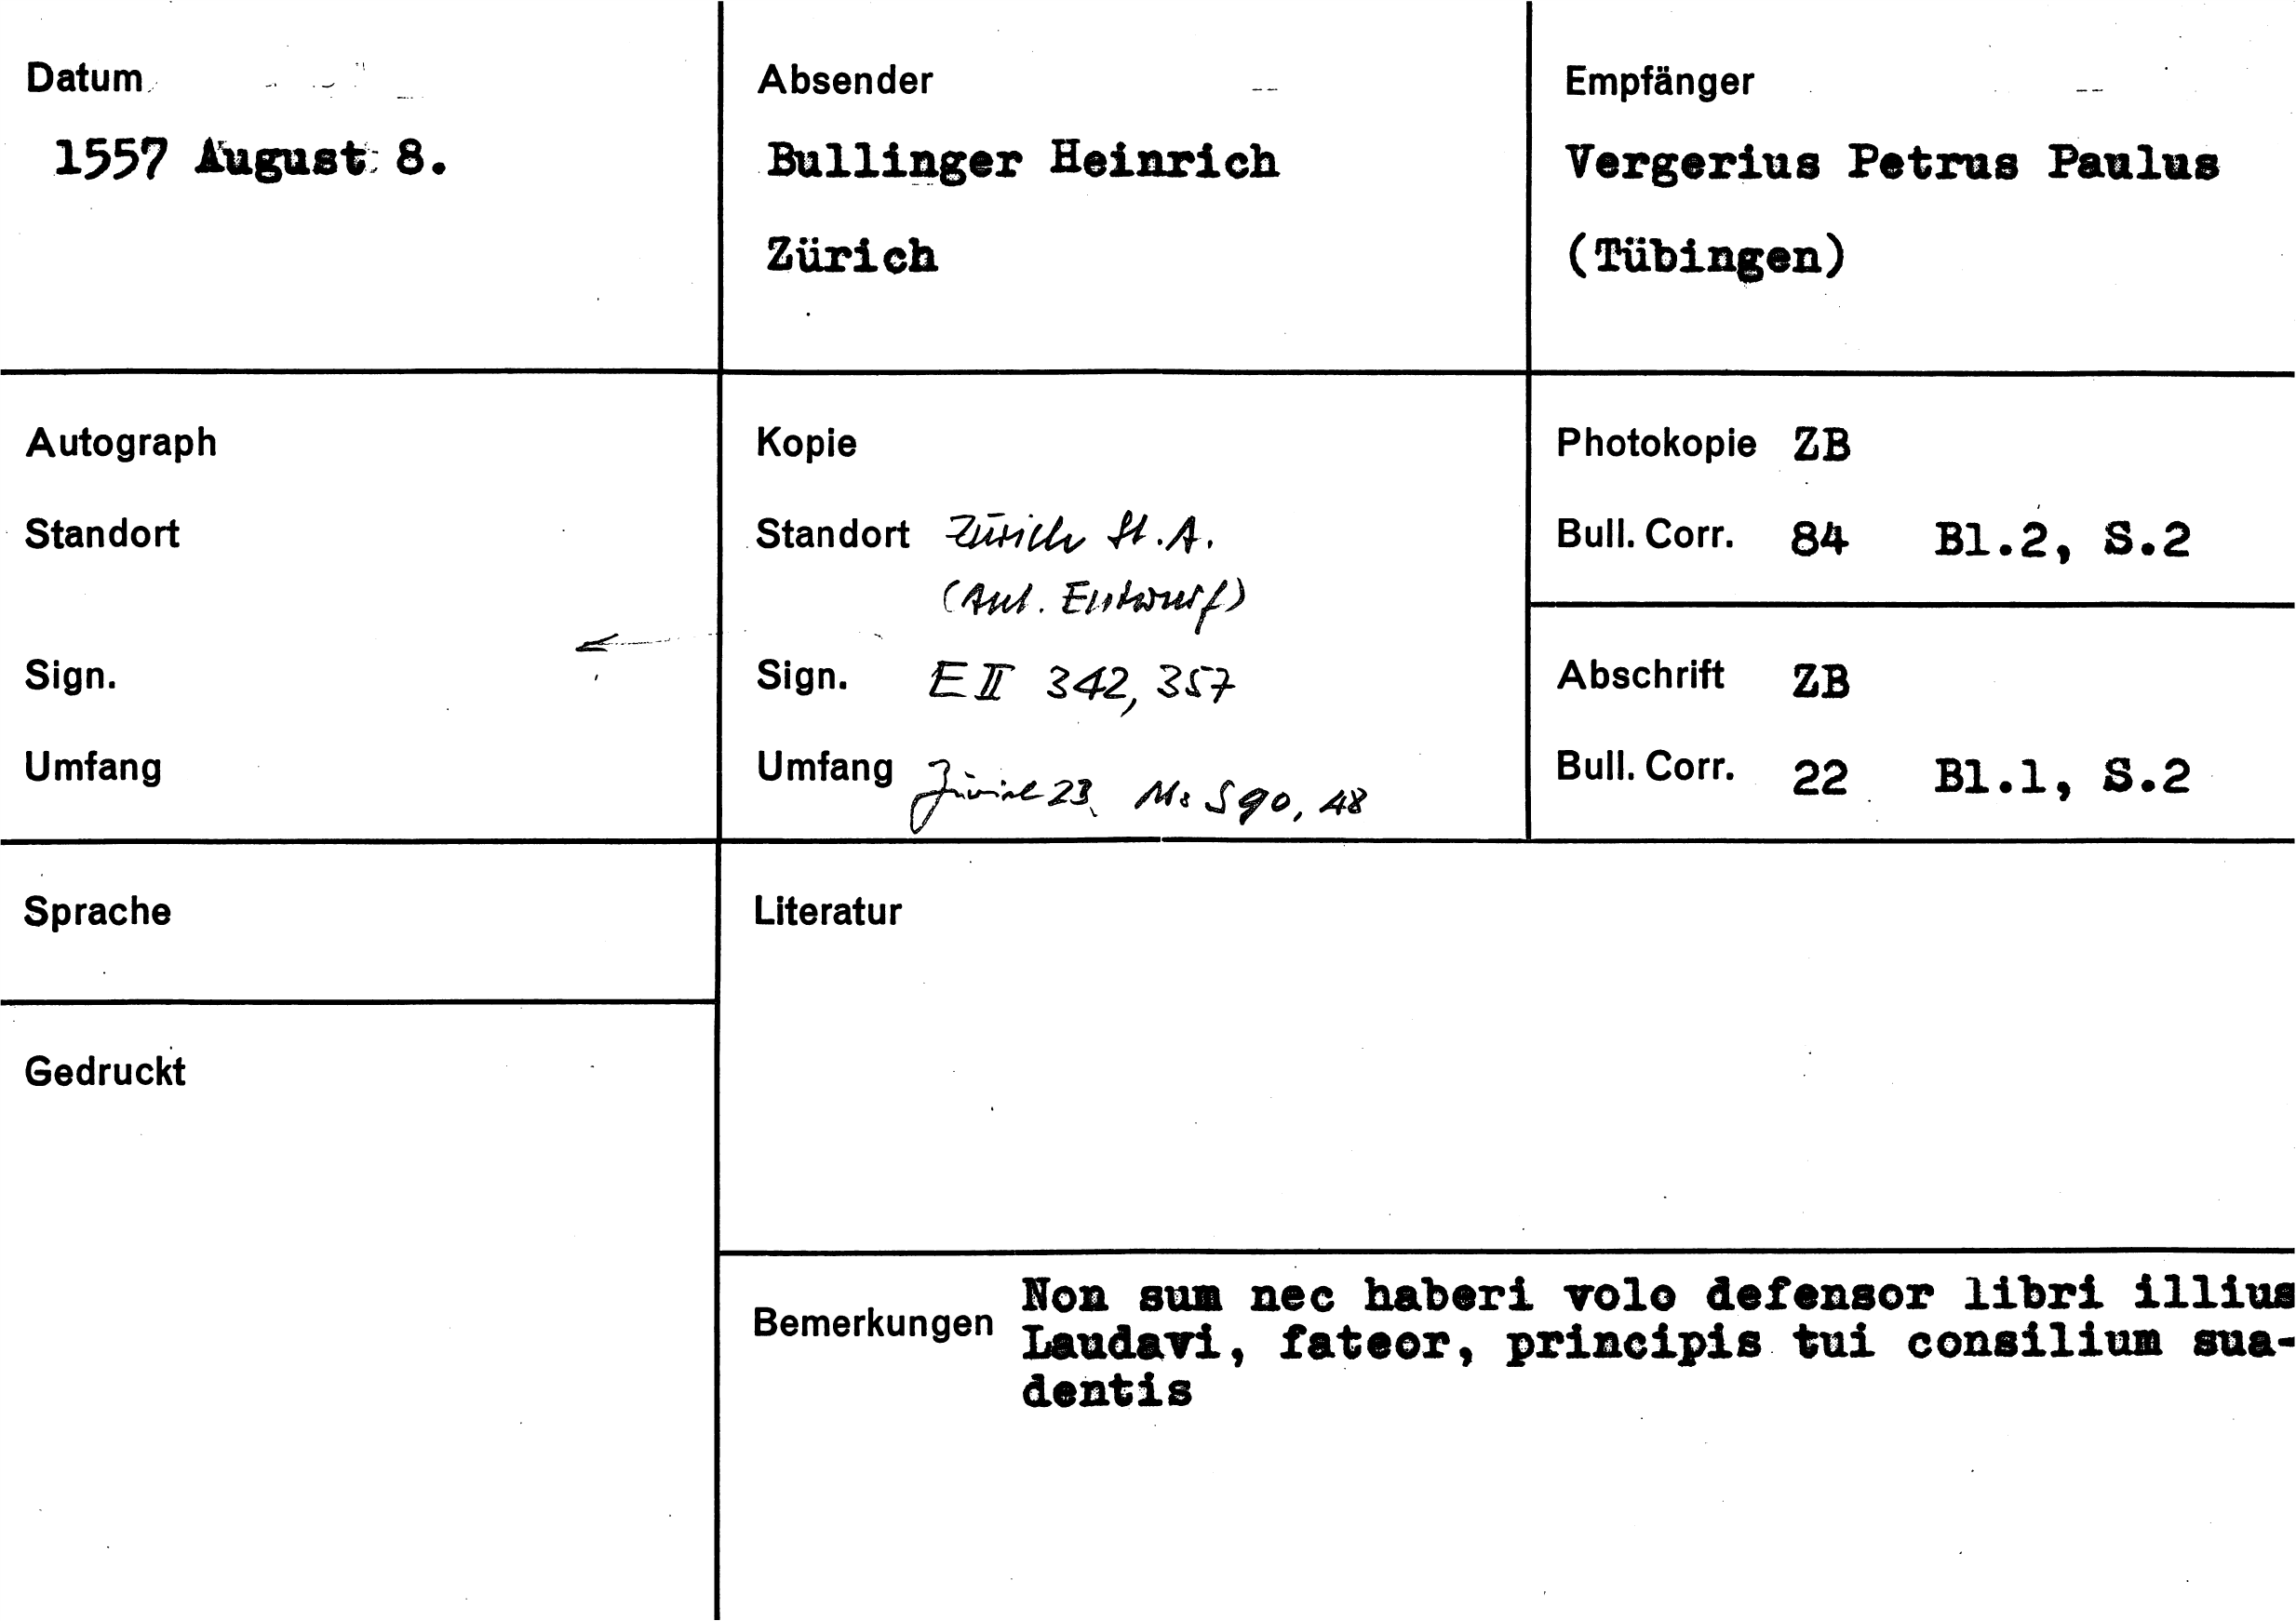 Datum
1557 August 8.
Absender
Bullinger Heinrich
Zürich
Empfänger
Vergerius Petrus Paulus
(Tübingen)
Autograph
Standort
Sign.
Umfang
Kopie
Standort Zürich St.A.
(Aut. Entwurf)
Sign. E II 342, 357
Umfang Zürich ZB, Ms S 90, 48
Photokopie ZB
Bull. Corr. 84 Bl.2, S.2
Abschrift ZB
Bull. Corr. 22 Bl.1, S.2
Sprache
Gedruckt
Literatur
Bemerkungen
Non sum nec haberi volo defensor libri illius
Laudavi, fateor, principis tui consilium sua-
dentis